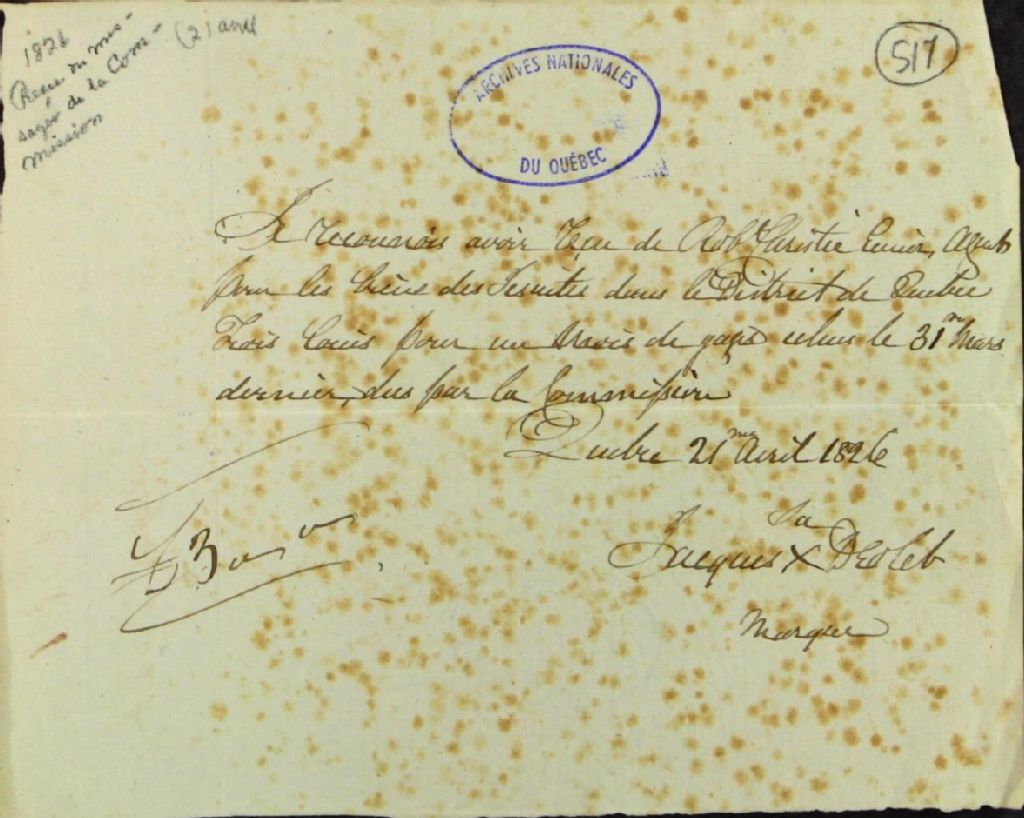 1826 (21 avril
Recu du mes-
sager de la Com-
mission
517
ARCHIVES NATIONALES
DU QUÉBEC
Je reconnois avoir reçu de Robt Christie Ecuier, Agent
pour les biens des Jesuites dans le District de Quebec
Trois Louis pour un mois de gages echus le 31m Mars
dernier, dus par la Commission
Quebec 21me Avril 1826
£3 " 0 " 0
sa
Jacques X
Marque